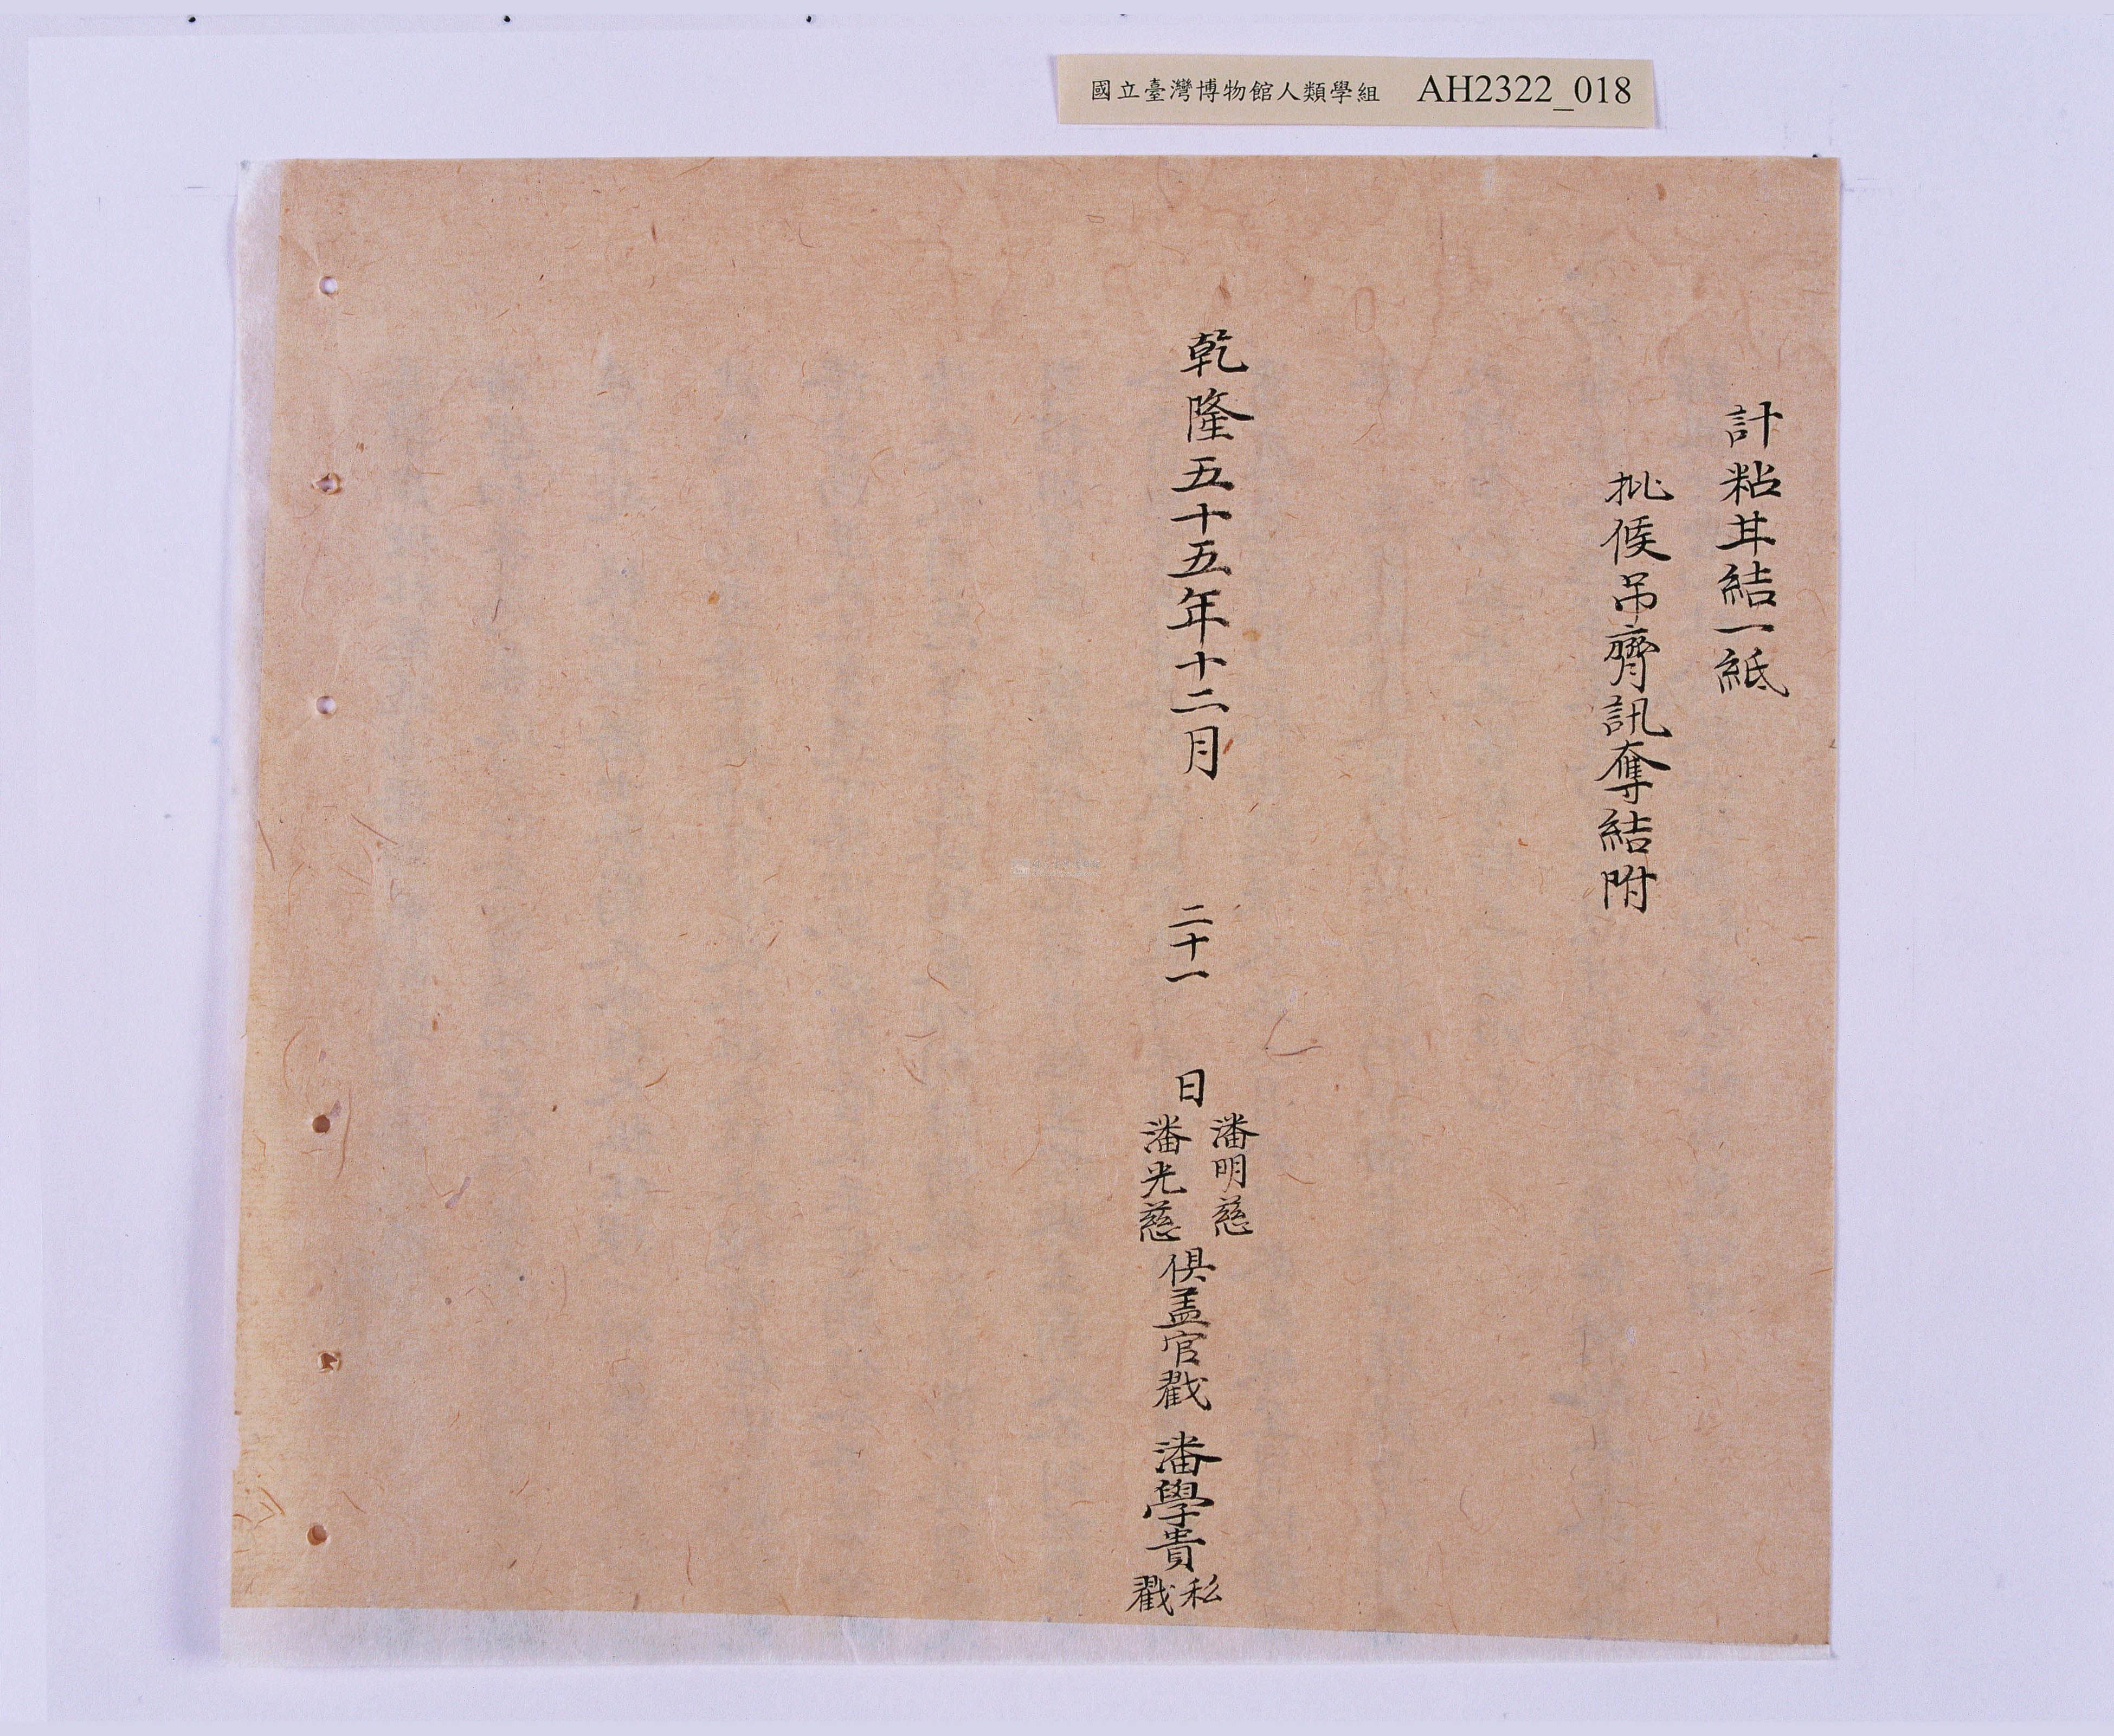 國立臺灣博物館人類學組 AH2322_018
計粘甘結一紙
批候吊齊訊奪結附
乾隆五十五年十二月 二十一 日
潘明慈
潘光慈
俱盖官戳
潘學貴
私戳